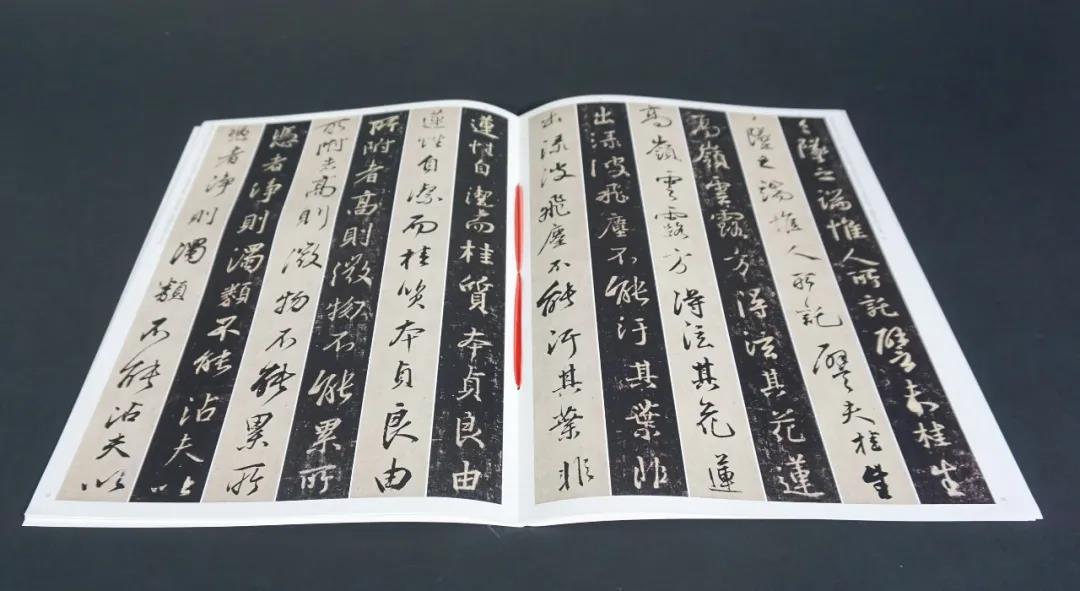 〻墜之端惟人所託譬夫桂生
〻墜之端惟人所託譬夫桂生
高嶺雲露方得泫其花蓮
高嶺雲露方得泫其花蓮
出淥波飛塵不能汙其葉非
出淥波飛塵不能汙其葉非
蓮性自潔而桂質本貞良由
蓮性自潔而桂質本貞良由
所附者高則微物不能累所
所附者高則微物不能累所
憑者淨則濁類不能沾夫以
憑者淨則濁類不能沾夫以